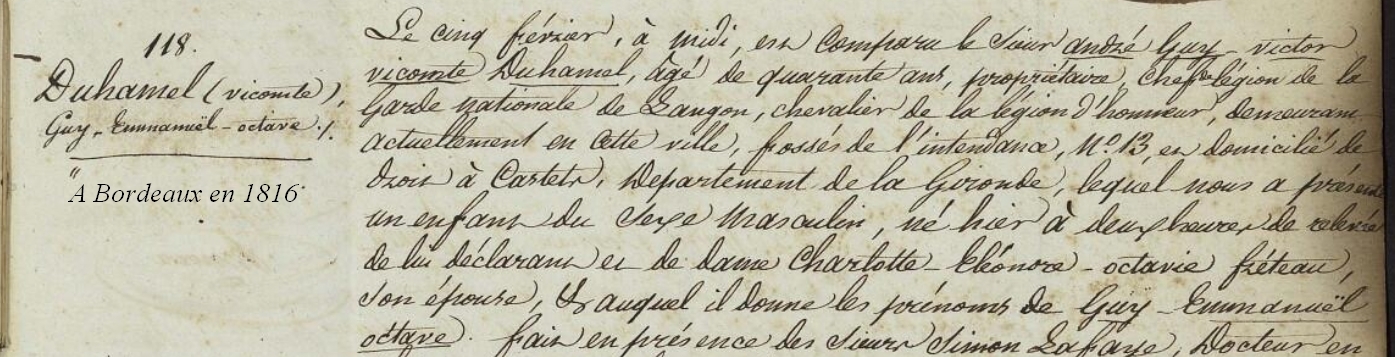 118.
Duhamel (vicomte),
Guy-Emmanuël-octave ./.
A Bordeaux en 1816
Le cinq février, à midi, est comparu le Sieur andré Guy-victor
vicomte Duhamel, âgé de quarante ans, propriétaire, Chef de légion de la
Garde Nationale de Langon, chevalier de la légion d'honneur, demeurant
actuellement en cette ville, fossés de l'intendance, N° 13, et domicilié de
droit à Castets, Département de la Gironde, lequel nous a présenté
un enfant du sexe Masculin, né hier à deux heures de relevée
de lui déclarant et de dame Charlotte-Eléonore-octavie fréteau,
son épouse, & auquel il donne les prénoms de Guÿ-Emmanuël
octave. fait en présence des sieurs Simon Lafaye, Docteur en